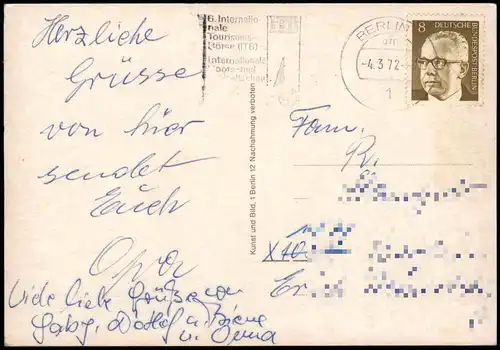 Herzliche
Grüsse
von hier
sendet
Euch
Opa
Viele liebe Grüße von
Gaby, Detlef u. Biene
u. Oma
Kunst und Bild, 1 Berlin 12 Nachahmung verboten
6. Internatio-
nale
Tourismus-
Börse (ITB)
Internationale
BERLIN
-4.3.72-
1
8
DEUTSCHE BUNDESPOST BERLIN
Fam.
R.